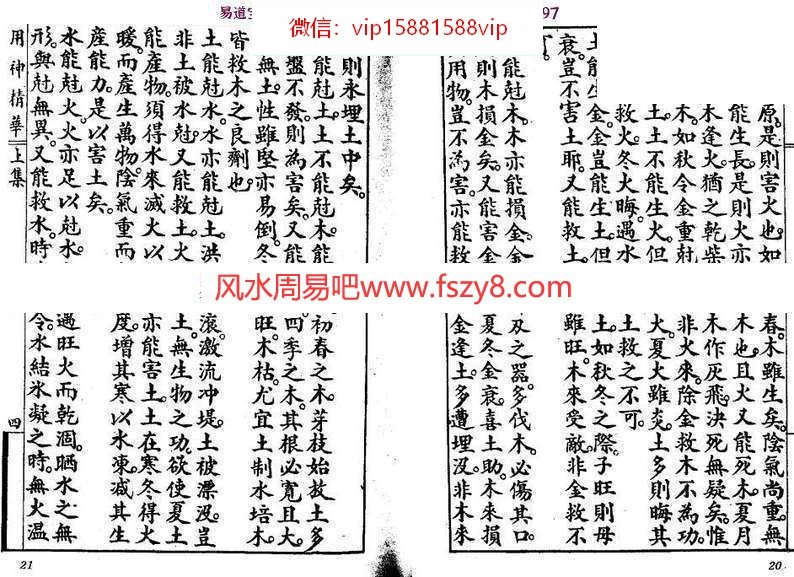 易道
97
微信：vip15881588vip
原。是則害火也。如
春。木雖生矣。陰氣尚重。無
能生長。是則火亦
木也。且火又能死木。夏月
木逢火。猶之乾柴
木作灰飛。決死無疑矣。惟
木。如秋令金重尅
非火來。除金救木不為功。
土。土不能生火。但
火。夏火雖炎。土多則晦其
救火。冬火晦。遇水
土救之不可。
土能生金。金豈能生土。但
土。如秋冬之際。子旺則母
衰。豈不害土耶。又能救土。
雖旺。木來受敵。非金救不
能尅木。木亦能損金。金
及之器。多伐木。必傷其口。
則木損金矣。又能害金
夏冬金衰。喜土助。木來損
用物。豈不為害。亦能救
金逢土多遭埋沒。非木來
則永埋土中矣。
能尅土。土不能尅木。能
初春之木。芽枝始放。土多
盤不發。則為害矣。又能
四季之木。其根必寬且大。
無土。性雖堅亦易倒。冬
旺。木枯。尤宜土制水培木。
皆救木之良劑也。
土能尅水。水亦能尅土。洪
滾。激流冲堤。土被漂沒。豈
非土被水尅。又能救土。火
土。無生物之功。欲使夏土
能產物。須得水來滅火以
亦能害土。土在寒冬。得火
暖而產生萬物。陰氣重而
度增其寒。以水凍減其生
產能力。是以害土矣。
水能尅火。火亦足以尅水。
遇旺火而乾涸。晒水之無
形。與尅無異。又能救水。時
令。水結氷凝之時。無火溫
用神精華 上集
四
风水周易吧www.fszy8.com
21
20